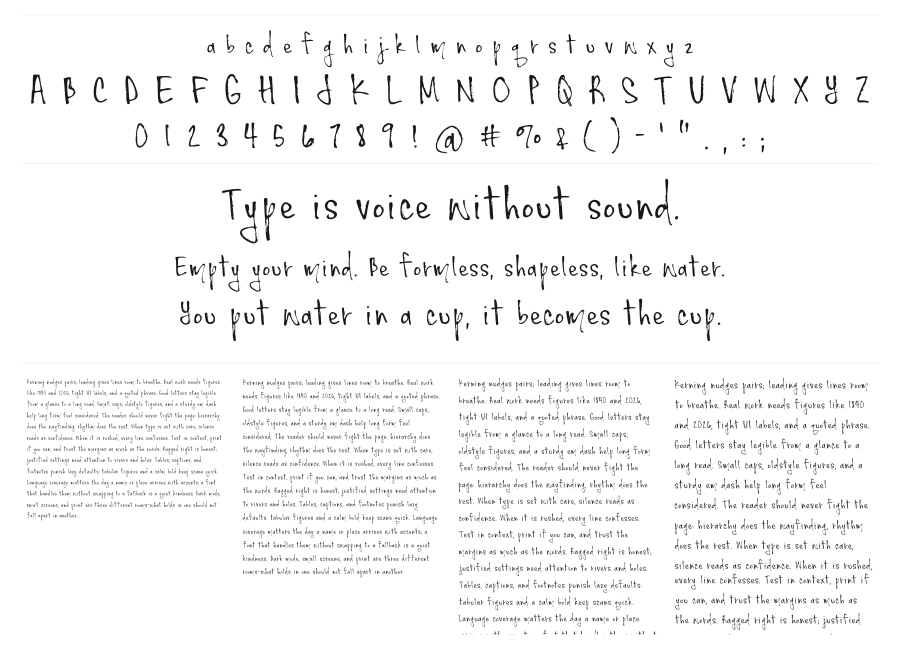 a b c d e f g h i j k l m n o p q r s t u v w x y z
A B C D E F G H I J K L M N O P Q R S T U V W X Y Z
0 1 2 3 4 5 6 7 8 9 ! @ # % & ( ) - ' " . , : ;
Type is voice without sound.
Empty your mind. Be formless, shapeless, like water.
You put water in a cup, it becomes the cup.
Kerning nudges pairs; leading gives lines room to breathe. Real work needs figures
like 1890 and 2026, tight UI labels, and a quoted phrase. Good letters stay legible
from a glance to a long read. Small caps, oldstyle figures, and a sturdy em dash
help long form feel considered. The reader should never fight the page: hierarchy
does the wayfinding, rhythm does the rest. When type is set with care, silence
reads as confidence. When it is rushed, every line confesses. Test in context, print
if you can, and trust the margins as much as the words. Ragged right is honest;
justified settings need attention to rivers and holes. Tables, captions, and
footnotes punish lazy defaults: tabular figures and a calm bold keep scans quick.
Language coverage matters the day a name or place arrives with accents; a font
that handles them without snapping to a fallback is a quiet kindness. Dark mode,
small screens, and print are three different rooms—what holds in one should not
fall apart in another.
Kerning nudges pairs; leading gives lines room to breathe. Real work
needs figures like 1890 and 2026, tight UI labels, and a quoted phrase.
Good letters stay legible from a glance to a long read. Small caps,
oldstyle figures, and a sturdy em dash help long form feel
considered. The reader should never fight the page: hierarchy does
the wayfinding, rhythm does the rest. When type is set with care,
silence reads as confidence. When it is rushed, every line confesses.
Test in context, print if you can, and trust the margins as much as
the words. Ragged right is honest; justified settings need attention
to rivers and holes. Tables, captions, and footnotes punish lazy
defaults: tabular figures and a calm bold keep scans quick. Language
coverage matters the day a name or place arrives with accents; a
font that handles them without snapping to a fallback is a quiet
kindness. Dark mode, small screens, and print are three different
rooms—what holds in one should not fall apart in another.
Kerning nudges pairs; leading gives lines room to
breathe. Real work needs figures like 1890 and 2026,
tight UI labels, and a quoted phrase. Good letters stay
legible from a glance to a long read. Small caps,
oldstyle figures, and a sturdy em dash help long form
feel considered. The reader should never fight the
page: hierarchy does the wayfinding, rhythm does the
rest. When type is set with care, silence reads as
confidence. When it is rushed, every line confesses.
Test in context, print if you can, and trust the
margins as much as the words. Ragged right is honest;
justified settings need attention to rivers and holes.
Tables, captions, and footnotes punish lazy defaults:
tabular figures and a calm bold keep scans quick.
Language coverage matters the day a name or place
Kerning nudges pairs; leading gives lines room
to breathe. Real work needs figures like 1890
and 2026, tight UI labels, and a quoted phrase.
Good letters stay legible from a glance to a
long read. Small caps, oldstyle figures, and a
sturdy em dash help long form feel
considered. The reader should never fight the
page: hierarchy does the wayfinding, rhythm
does the rest. When type is set with care,
silence reads as confidence. When it is rushed,
every line confesses. Test in context, print if
you can, and trust the margins as much as
the words. Ragged right is honest; justified